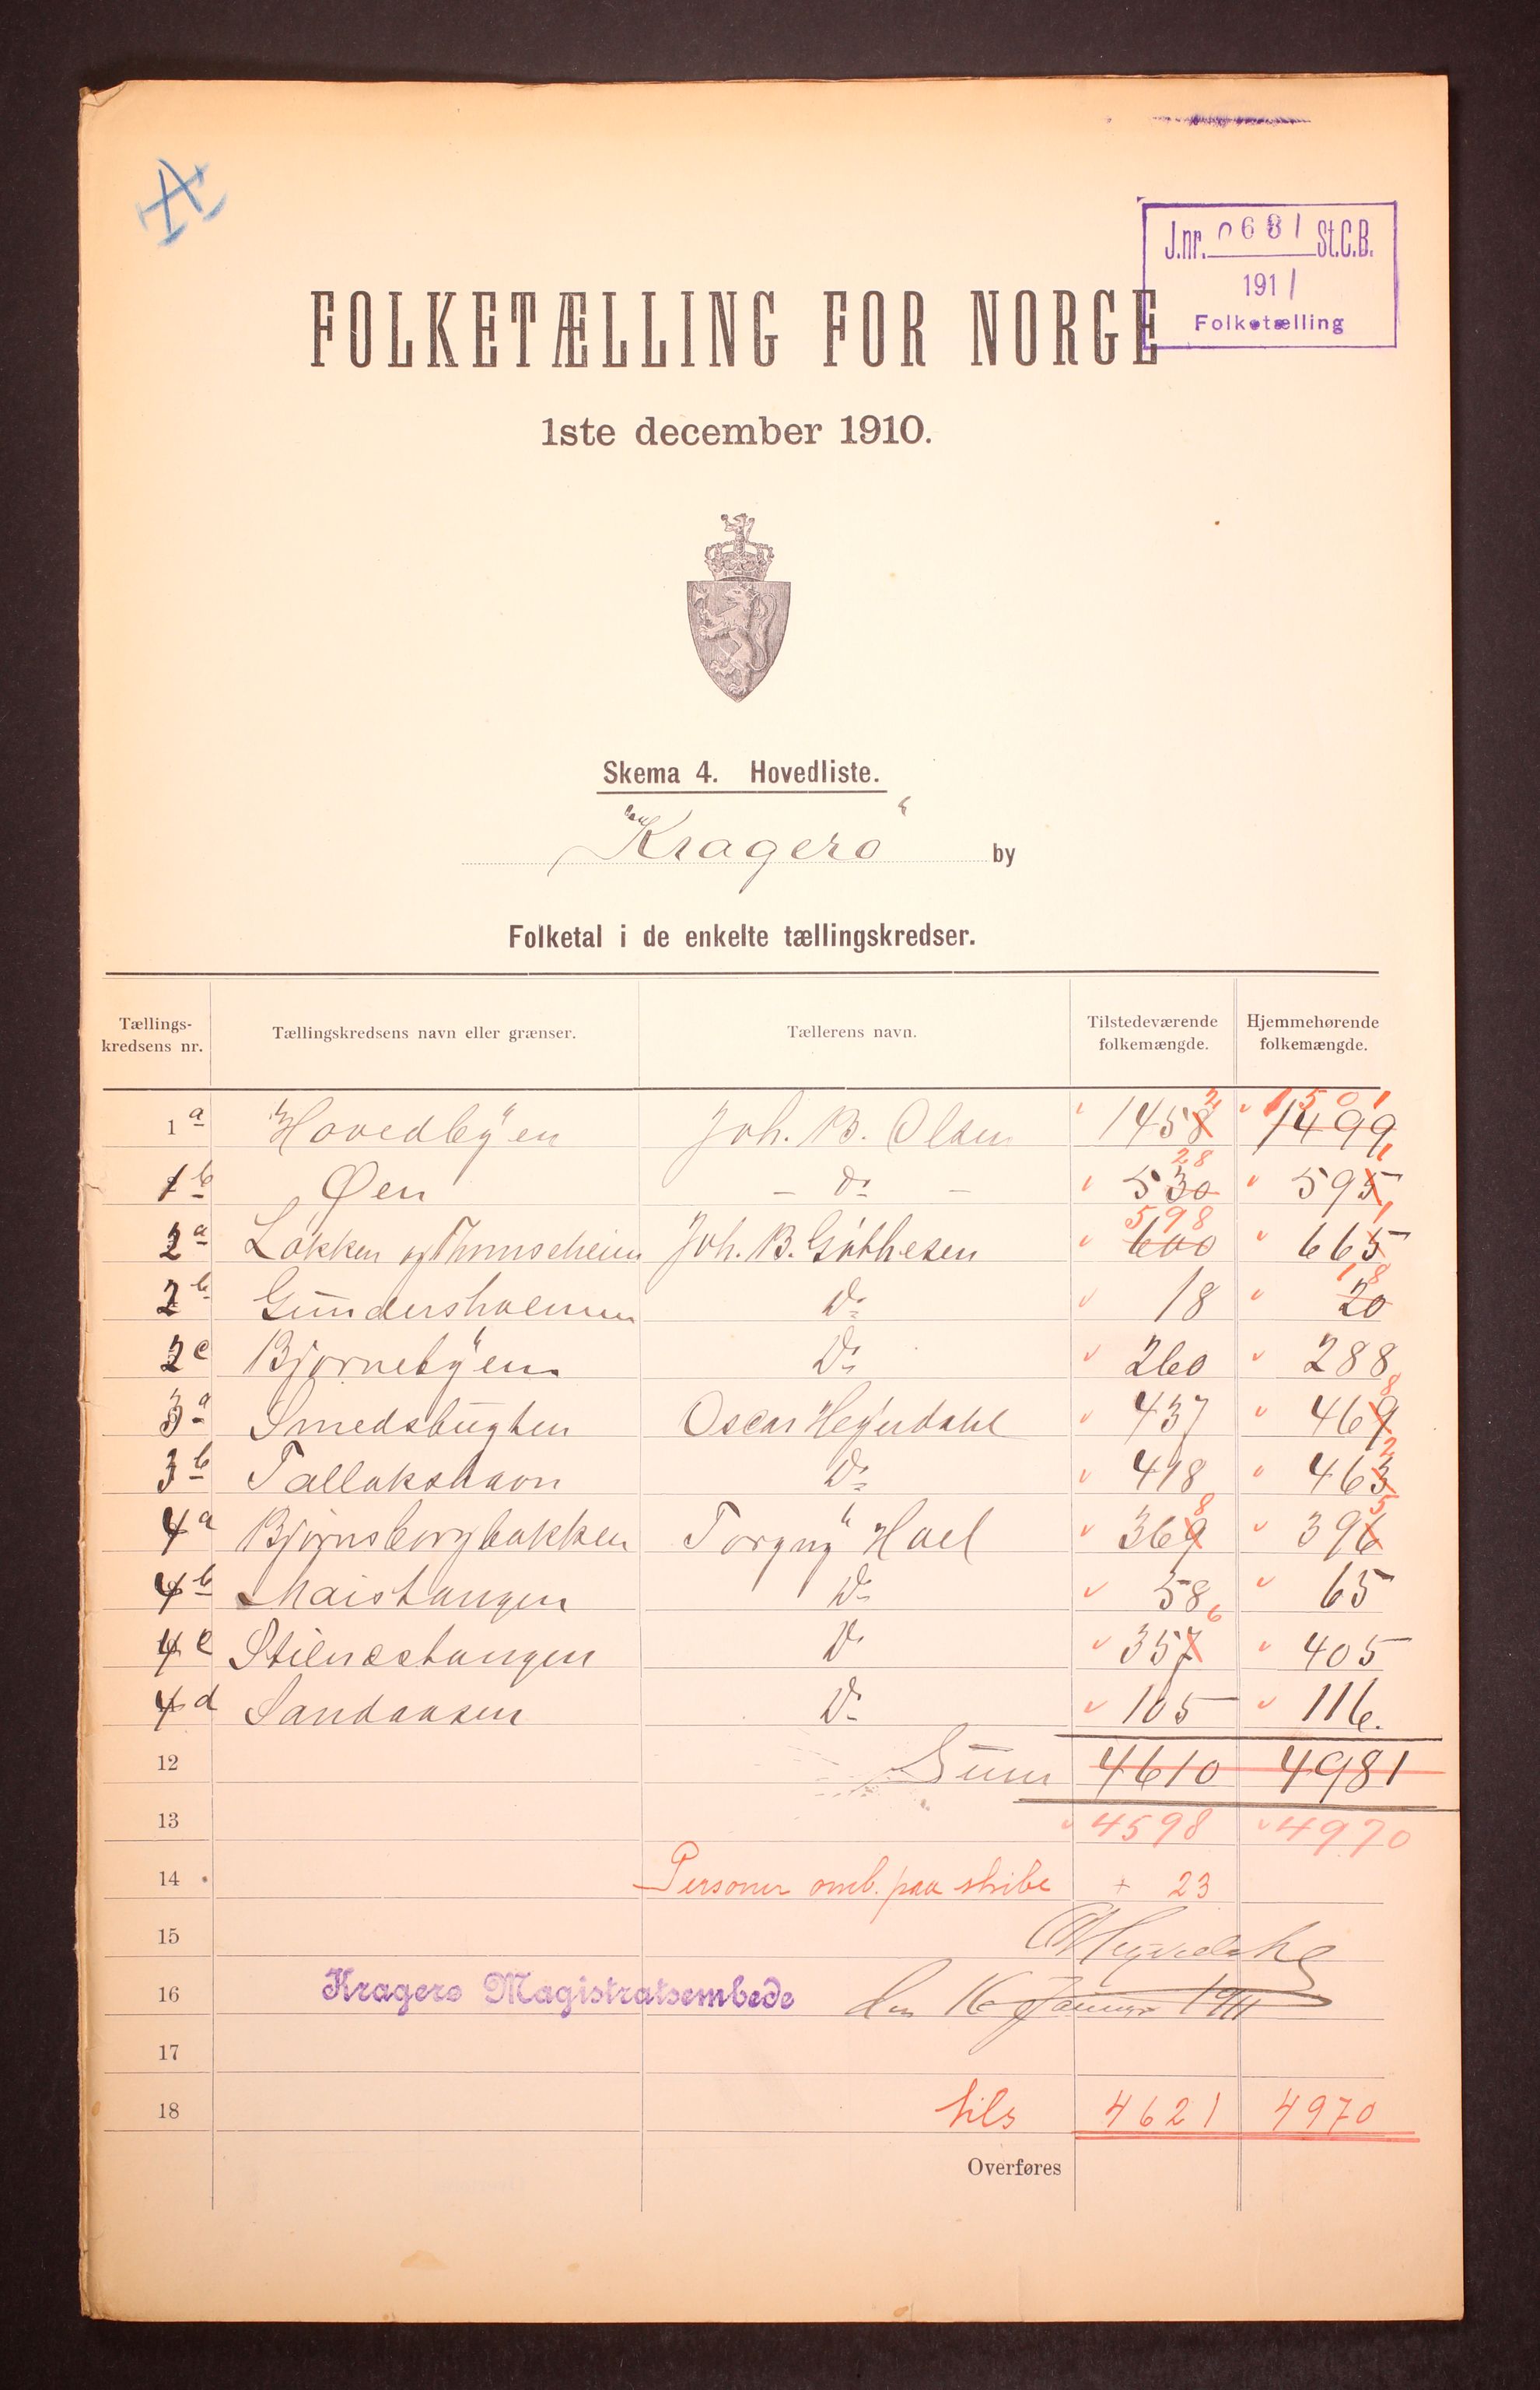 J.nr. 0681 St.C.B.
1911
Folketælling
FOLKETÆLLING FOR NORGE
1ste december 1910.
Skema 4. Hovedliste.
"Kragerø" by
Folketal i de enkelte tællingskredser.
Tællings-kredsens nr. Tællingskredsens navn eller grænser. Tællerens navn. Tilstedeværende folkemængde. Hjemmehørende folkemængde.
1a Hovedbyen Joh. B. Olsen 1458 2 1499 1501
1b Øen – Do – 530 28 595 1
2a Løkken og Joh. B. Gøthesen 600 598 665 1
2b Gundersholmen Do 18 20 18
2c Bjørnebyen Do 260 288
3a Smedsbugten Oscar Heyerdahl 437 469 8
3b Tallakshavn Do 418 463 2
4a Bjørnsborgbakken Torgny Hael 369 8 396 5
4b Maistangen Do 58 65
4c Stilnestangen Do 357 6 405
4d Sandaasen Do 105 116.
12 Sum 4610 4981
13 4598 4970
14 Personer omb. paa skibe + 23
15
16 Kragerø Magistratsembede den 16 Januar 1911
17
18 tils 4621 4970
Overføres